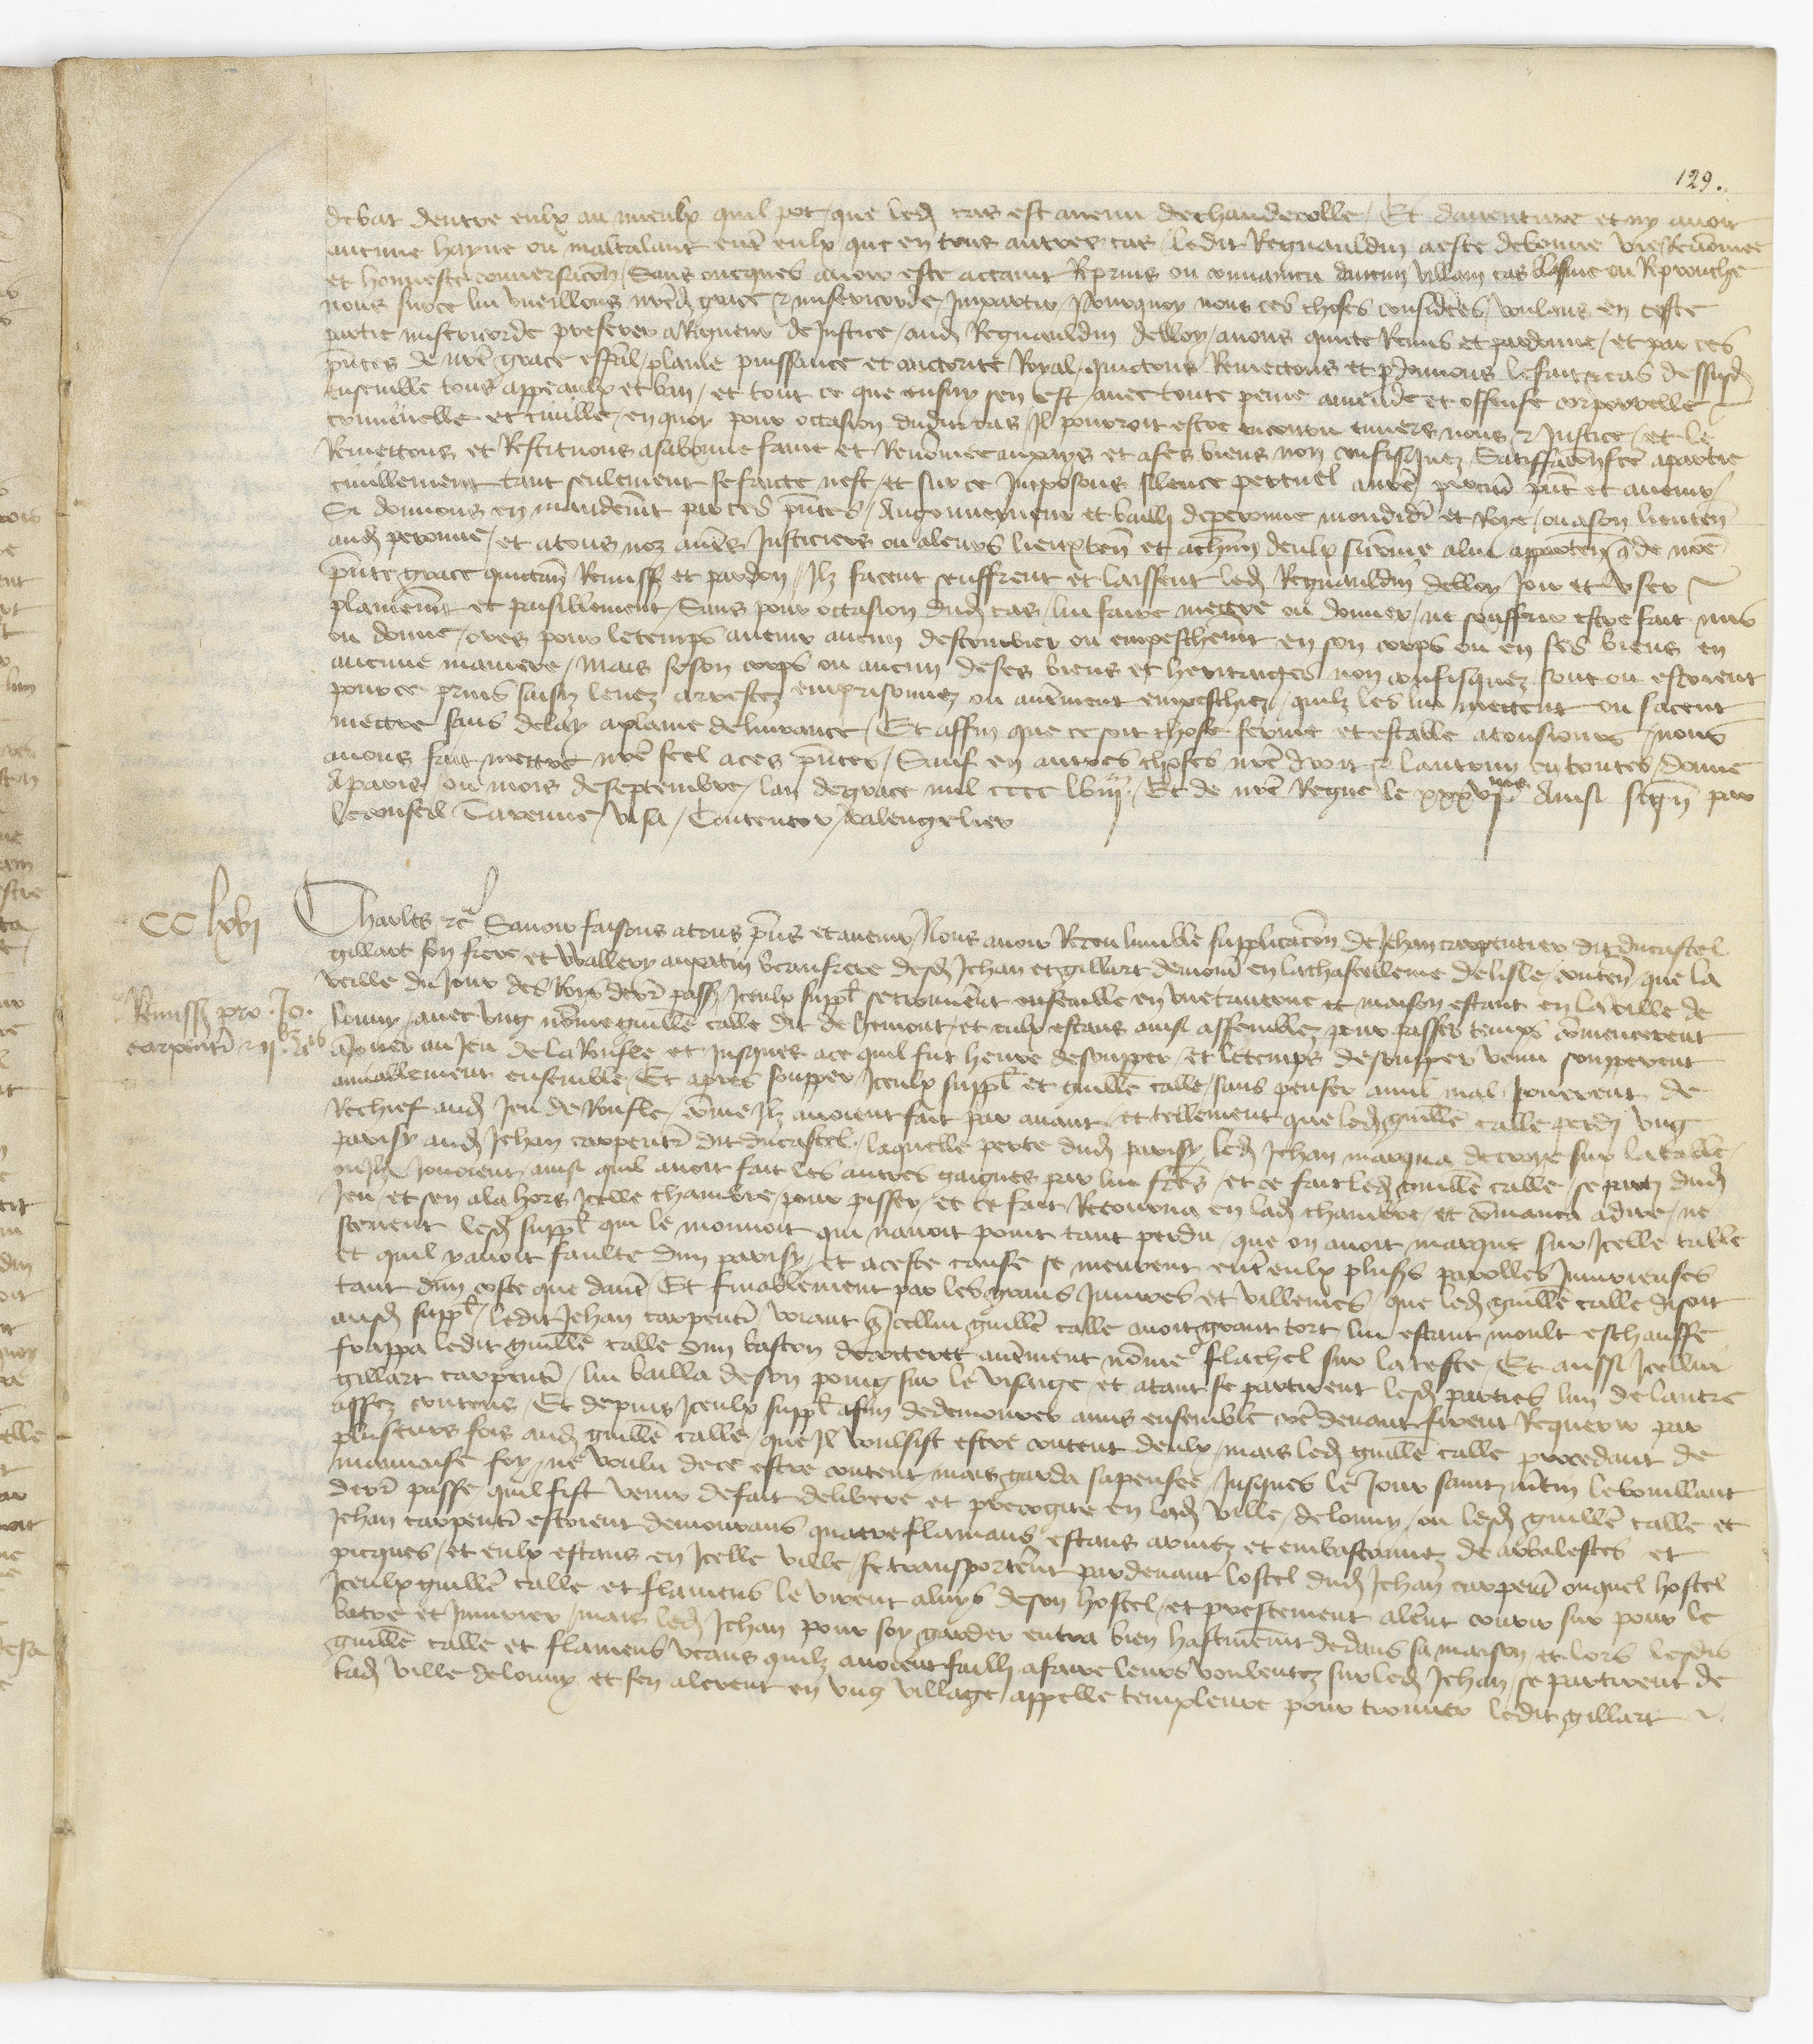 129.
debat dentre eulx au mieulx quil pot, que led cas est avenu de chaudecolle, Et daventure et ny avoit
aucune hayne ou maltalant entre eulx que en tous autres cas ledit Regnauldin a este de bonne vie Renommee
et honneste conversacion, Sans oncques avoir este actaint Reprins ou convaincu daucun villain cas blasme ou Reprouche
nous sur ce lui vueillons nre d grace & misericorde Impartir, Pourquoy nous ces choses considerees, voulans en ceste
partie misericorde preferer a Rigueur de Justice, aud Regnauldin delloy, avons quicte Remis et pardonne, et par ces
pntes de nre grace especial, plaine puissance et auctorite Royal, quictons Remectons et pdonnons le fait & cas dessusd
Ensemble tous appeaulx et ban, et tout ce que ensuy sen est, avec toute peine amende et offense corporelle
criminelle et civille, en quoy pour occasion dudit cas, Il pourroit estre encouru envers nous & Justice, et le
Remettons et Restituons a sa bonne fame et Renommee au pays et a ses biens non confisquez, Satisfaction fce a partie
civillement tant seulement se faicte nest, et sur ce Imposons silence perpetuel a nre procur pnt et avenir,
Si donnons en mandemt par ces pntes, Au gouverneur et bailli de peronne mondidi et Roye, ou a son lieuten
aud peronne, et a tous noz autres Justiciers ou a leurs lieuxten et a chun deulx si come a lui apparten q de nre
pnte grace quictan Remiss et pardon, Ilz facent seuffrent et laissent led Regnauldin delloy Joir et User
plainemt et paisiblement, Sans pour occasion dud cas, lui faire mectre ou donner, ne souffrir estre fait mis
ou donne, ores pour le temps avenir aucun destourbier ou empeschemt en son corps ou en ses biens en
aucune maniere, Mais se son corps ou aucun de ses biens et heritaiges non confisquez sont ou estoient
pour ce prins saisiz levez arrestez emprisonnez ou autrement empeschiez, quilz les lui mettent ou facent
mettre sans delay a plaine delivrance, Et affin que ce soit chose ferme et estable a tousiours, nous
avons fait mettre nre seel a ces pntes, Sauf en autres choses nre droit & lautruy en toutes, donne
A paris, ou mois de septembre, lan de grace mil cccc lviii, Et de nre Regne le xxxvi me Ainsi sign par
le conseil Varenne, visa, Contentor, valengelier
CC lxvi
Charles &c Savoir faisons a tous pns et avenir, Nous avoir Receu lumble supplicacion de Jehan carpentier dit ducastel
gillart son frere, et Wallery aupatin beaufrere desd Jehan et gillart demour en la chastellenie de lisle, conten que la
veille du Jour des Roys derr pass, Iceulx suppl se trouverent ensemble en une taverne et maison estant en la ville de
Remiss pro Jo. carpentr & ii bz aliis
lonny, avec Ung nomme guille calle dit de hemont, et eulx estans ainsi assemblez pour passer temps commencerent
a Jouer au Jeu de la Ronfle et Jusques a ce quil fut heure de soupper, et le temps de soupper venu soupperent
amiablement ensemble, Et apres soupper, Iceulx suppl et guille calle, sans penser a nul mal, Jouerent de
Rechief aud Jeu de Ronfle, come Ilz avoient fait par avant, et tellement que led guille calle perdi Ung
parisy aud Jehan carpentr dit ducastel, laquelle perte dud parisy, led Jehan marqua de croye sur la table
ou Ilz Jouoient, ainsi quil avoit fait les autres gaignes par lui fces, et ce fait led guille calle, se parti dud
Jeu, et sen ala hors Icelle chambre, pour pisser, et ce fait Retourna en lad chambre, et commanca a dire, ne
scevent lesd suppl qui le mouvoit qui navoit point tant perdu, que on avoit marque sur Icelle table
et quil y avoit faulte dun parisy, et a ceste cause se meurent entre eulx plusrs parolles Injurieuses
tant dun coste que dautre, Et finablement par les grans Injures et villenies, que led guille calle disoit
ausd suppl, ledit Jehan carpentr, voiant q Icellui guille calle avoit grant tort, lui estant moult eschauffe
frappa ledit guille calle dun baston autrement nomme flachel sur la teste, Et aussi Icellui
gillart carpentr, lui bailla de son poing sur le visaige, et atant se partirent lesd parties lun de lautre
assez contens, Et depuis Iceulx suppl afin de demourer amis ensemble come devant firent Requerir par
plusieurs fois aud guille calle, que Il voulsist estre content deulx, mais led guille calle procedant de
mauvaise foy, ne voulu de ce estre content, mais garda sa pensee, Jusques le Jour saint mtin le bouillant
derr passe quil fist venir de fait delibere et precogite en lad ville, de lonny, ou lesd guille calle et
Jehan carpentr estoient demourans quatre flamans, estans armez et embastonnez de arbalestes et
picques, et eulx estans en Icelle ville, se transporterent par devant lostel dud Jehan carpentr ouquel hostel
Iceulx guille calle et flamens le virent a luys de son hostel, et prestement alerent courir sur pour le
batre et Injurier, mais led Jehan pour soy garder entra bien hastivement dedans sa maison, et lors lesdis
guille calle et flamens veans quilz avoient failli a faire leurs voulentez sur led Jehan, se partirent de
lad ville de lonny et sen alerent en Ung village, appelle templeuve pour trouver ledit gillart